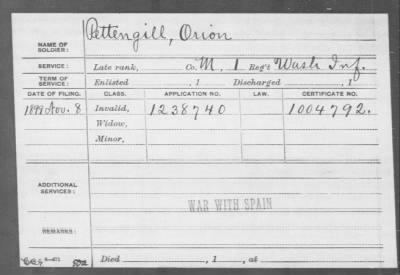 NAME OF SOLDIER: Pettengill, Orion
SERVICE: Late rank, Co. M, 1 Reg't Wash Inf.
TERM OF SERVICE: Enlisted , 1 Discharged , 1
DATE OF FILING. CLASS. APPLICATION NO. LAW. CERTIFICATE NO.
1899 Nov. 8 Invalid, 1238740 1004792.
Widow,
Minor,
ADDITIONAL SERVICES:
WAR WITH SPAIN
REMARKS:
Died , 1 , at